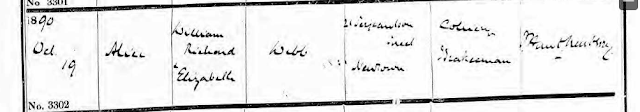 No 3301
1890
Oct.
19
Alice
William
Richard
Elizabeth
Webb
Street
Newtown
Colliery
Brakesman
No. 3302